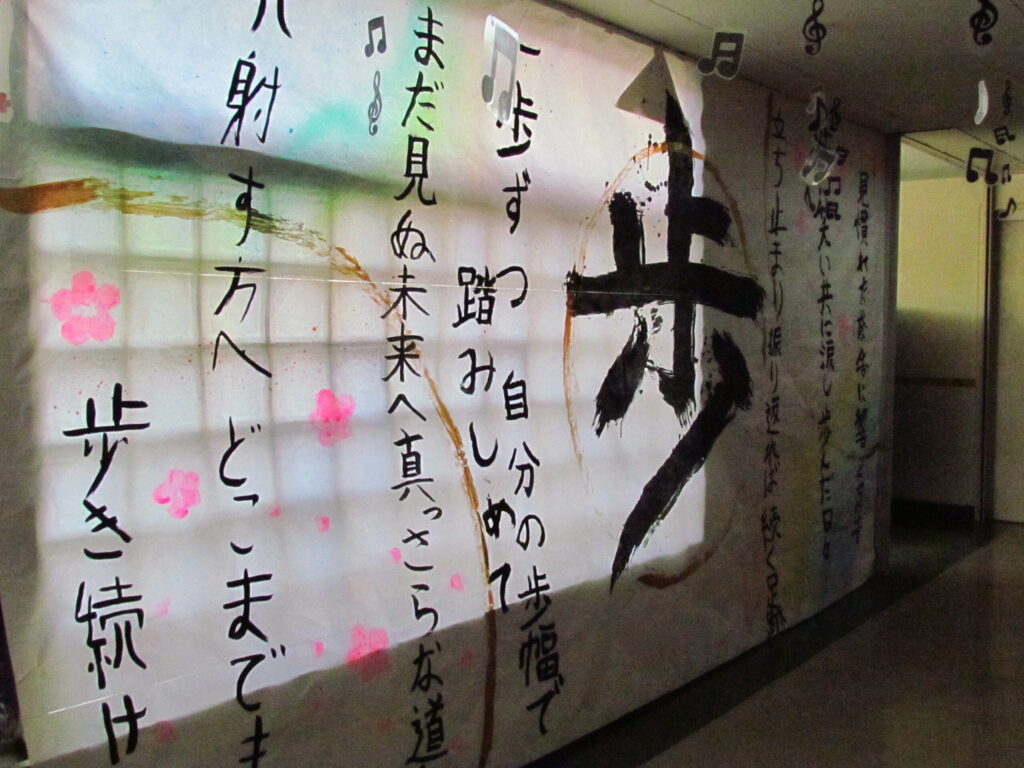 見慣れた景色に
笑い共に涙し歩んだ日々
立ち止まり振り返れば続く足跡
歩
一歩ずつ自分の歩幅で
踏みしめて
まだ見ぬ未来へ真っさらな道
射す方へどこまでも
歩き続け